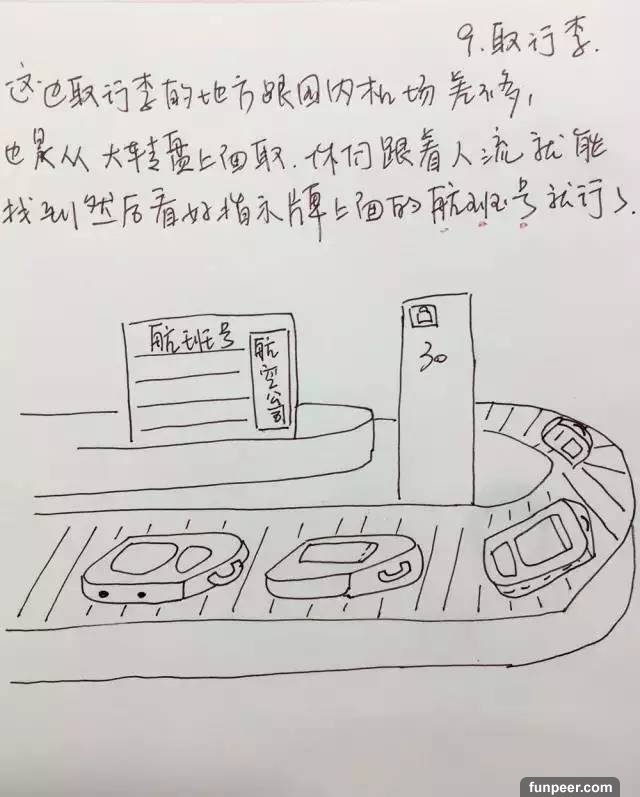 9.取行李.
这边取行李的地方跟国内机场差不多,
也是从大转盘上面取.你们跟着人流就能
找到然后看好指示牌上面的航班号就行了.
航班号
航空公司
30
funpeer.com